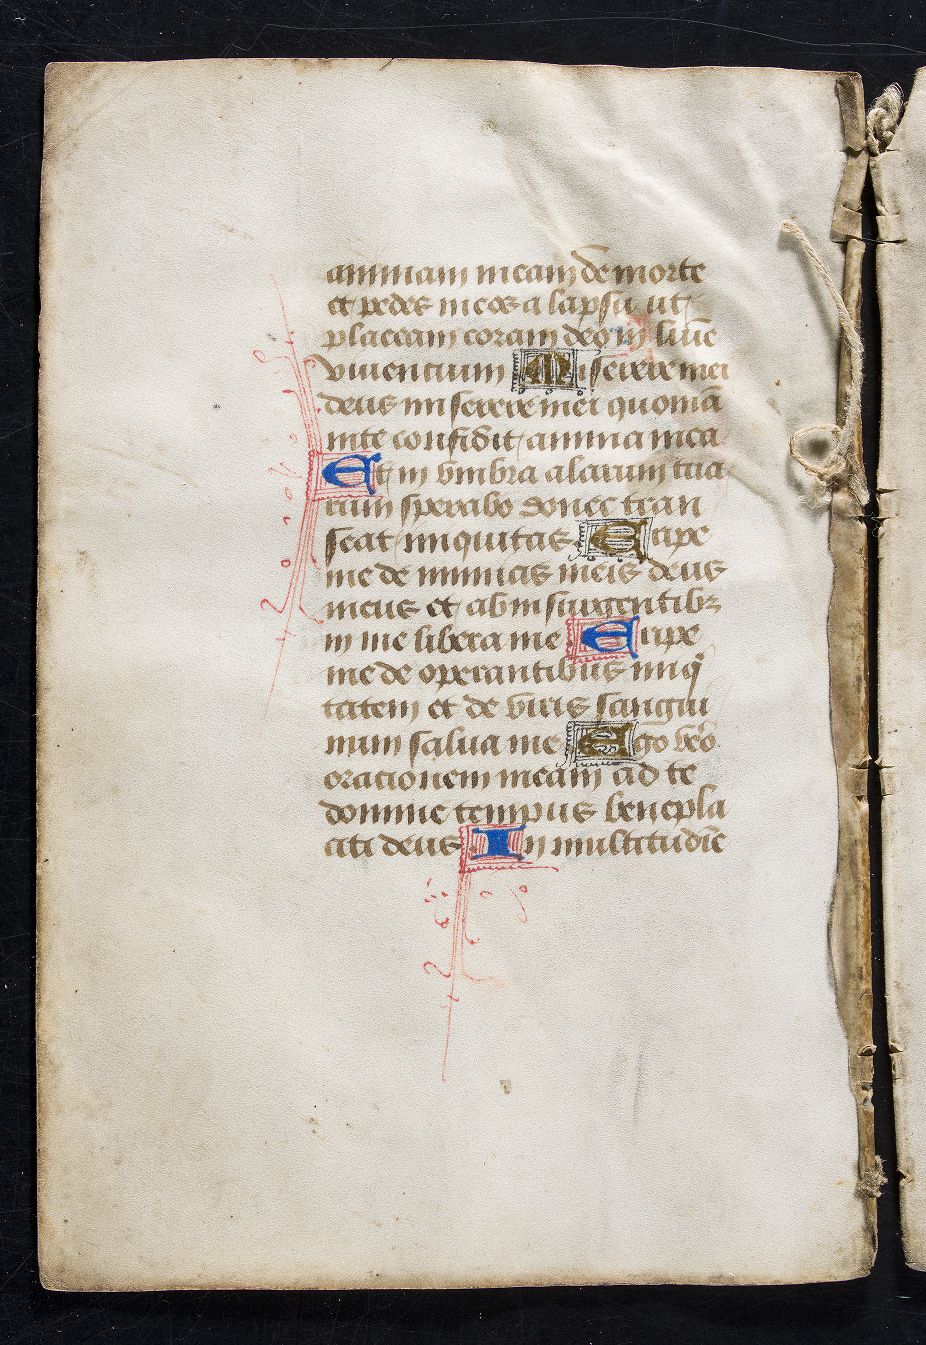 animam meam de morte
et pedes meos a lapsu ut
placeam coram deo in lumē
viuentium Miserere mei
deus miserere mei quoniā
in te confidit anima mea
Et in vmbra alarum tua
rum sperabo donec tran
seat iniquitas Eripe
me de inimicis meis deus
meus et ab insurgentibꝫ
in me libera me Eripe
me de operantibus iniq
tatem et de viris sangui
num salua me Ego vero
orationem meam ad te
domine tempus benepla
citi deus In multitudīe